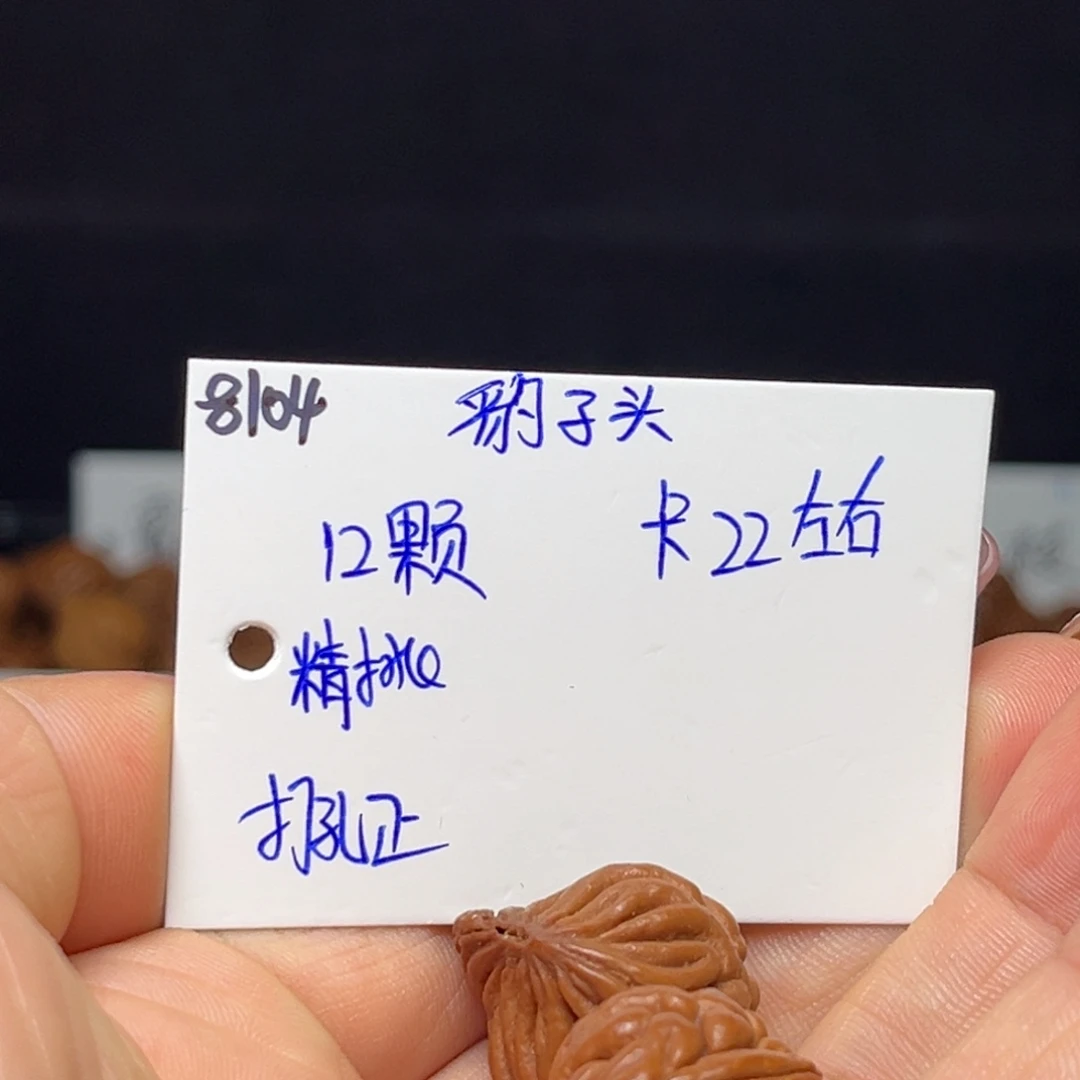 8104 豹子头
12颗 卡22左右
精挑
打孔正